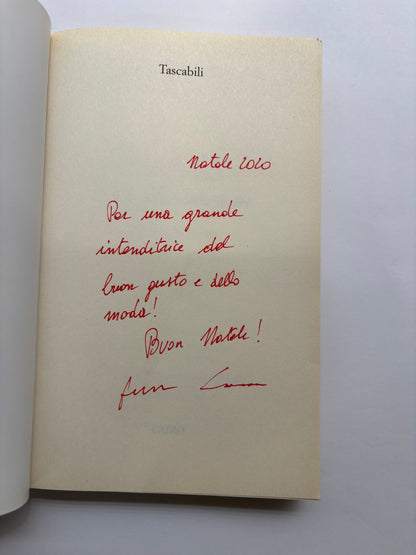 Tascabili
Natale 2020
Per una grande
intenditrice del
buon gusto e della
moda!
Buon Natale!